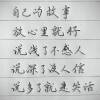 自己的故事
放心里就好
说浅了不感人
说深了没人信
说多了就是笑话